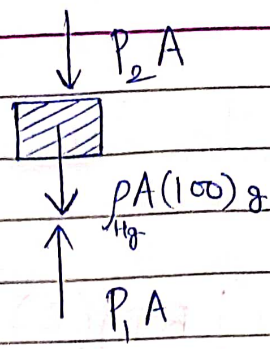 P₂A
ρ_Hg A(100) g
P₁A